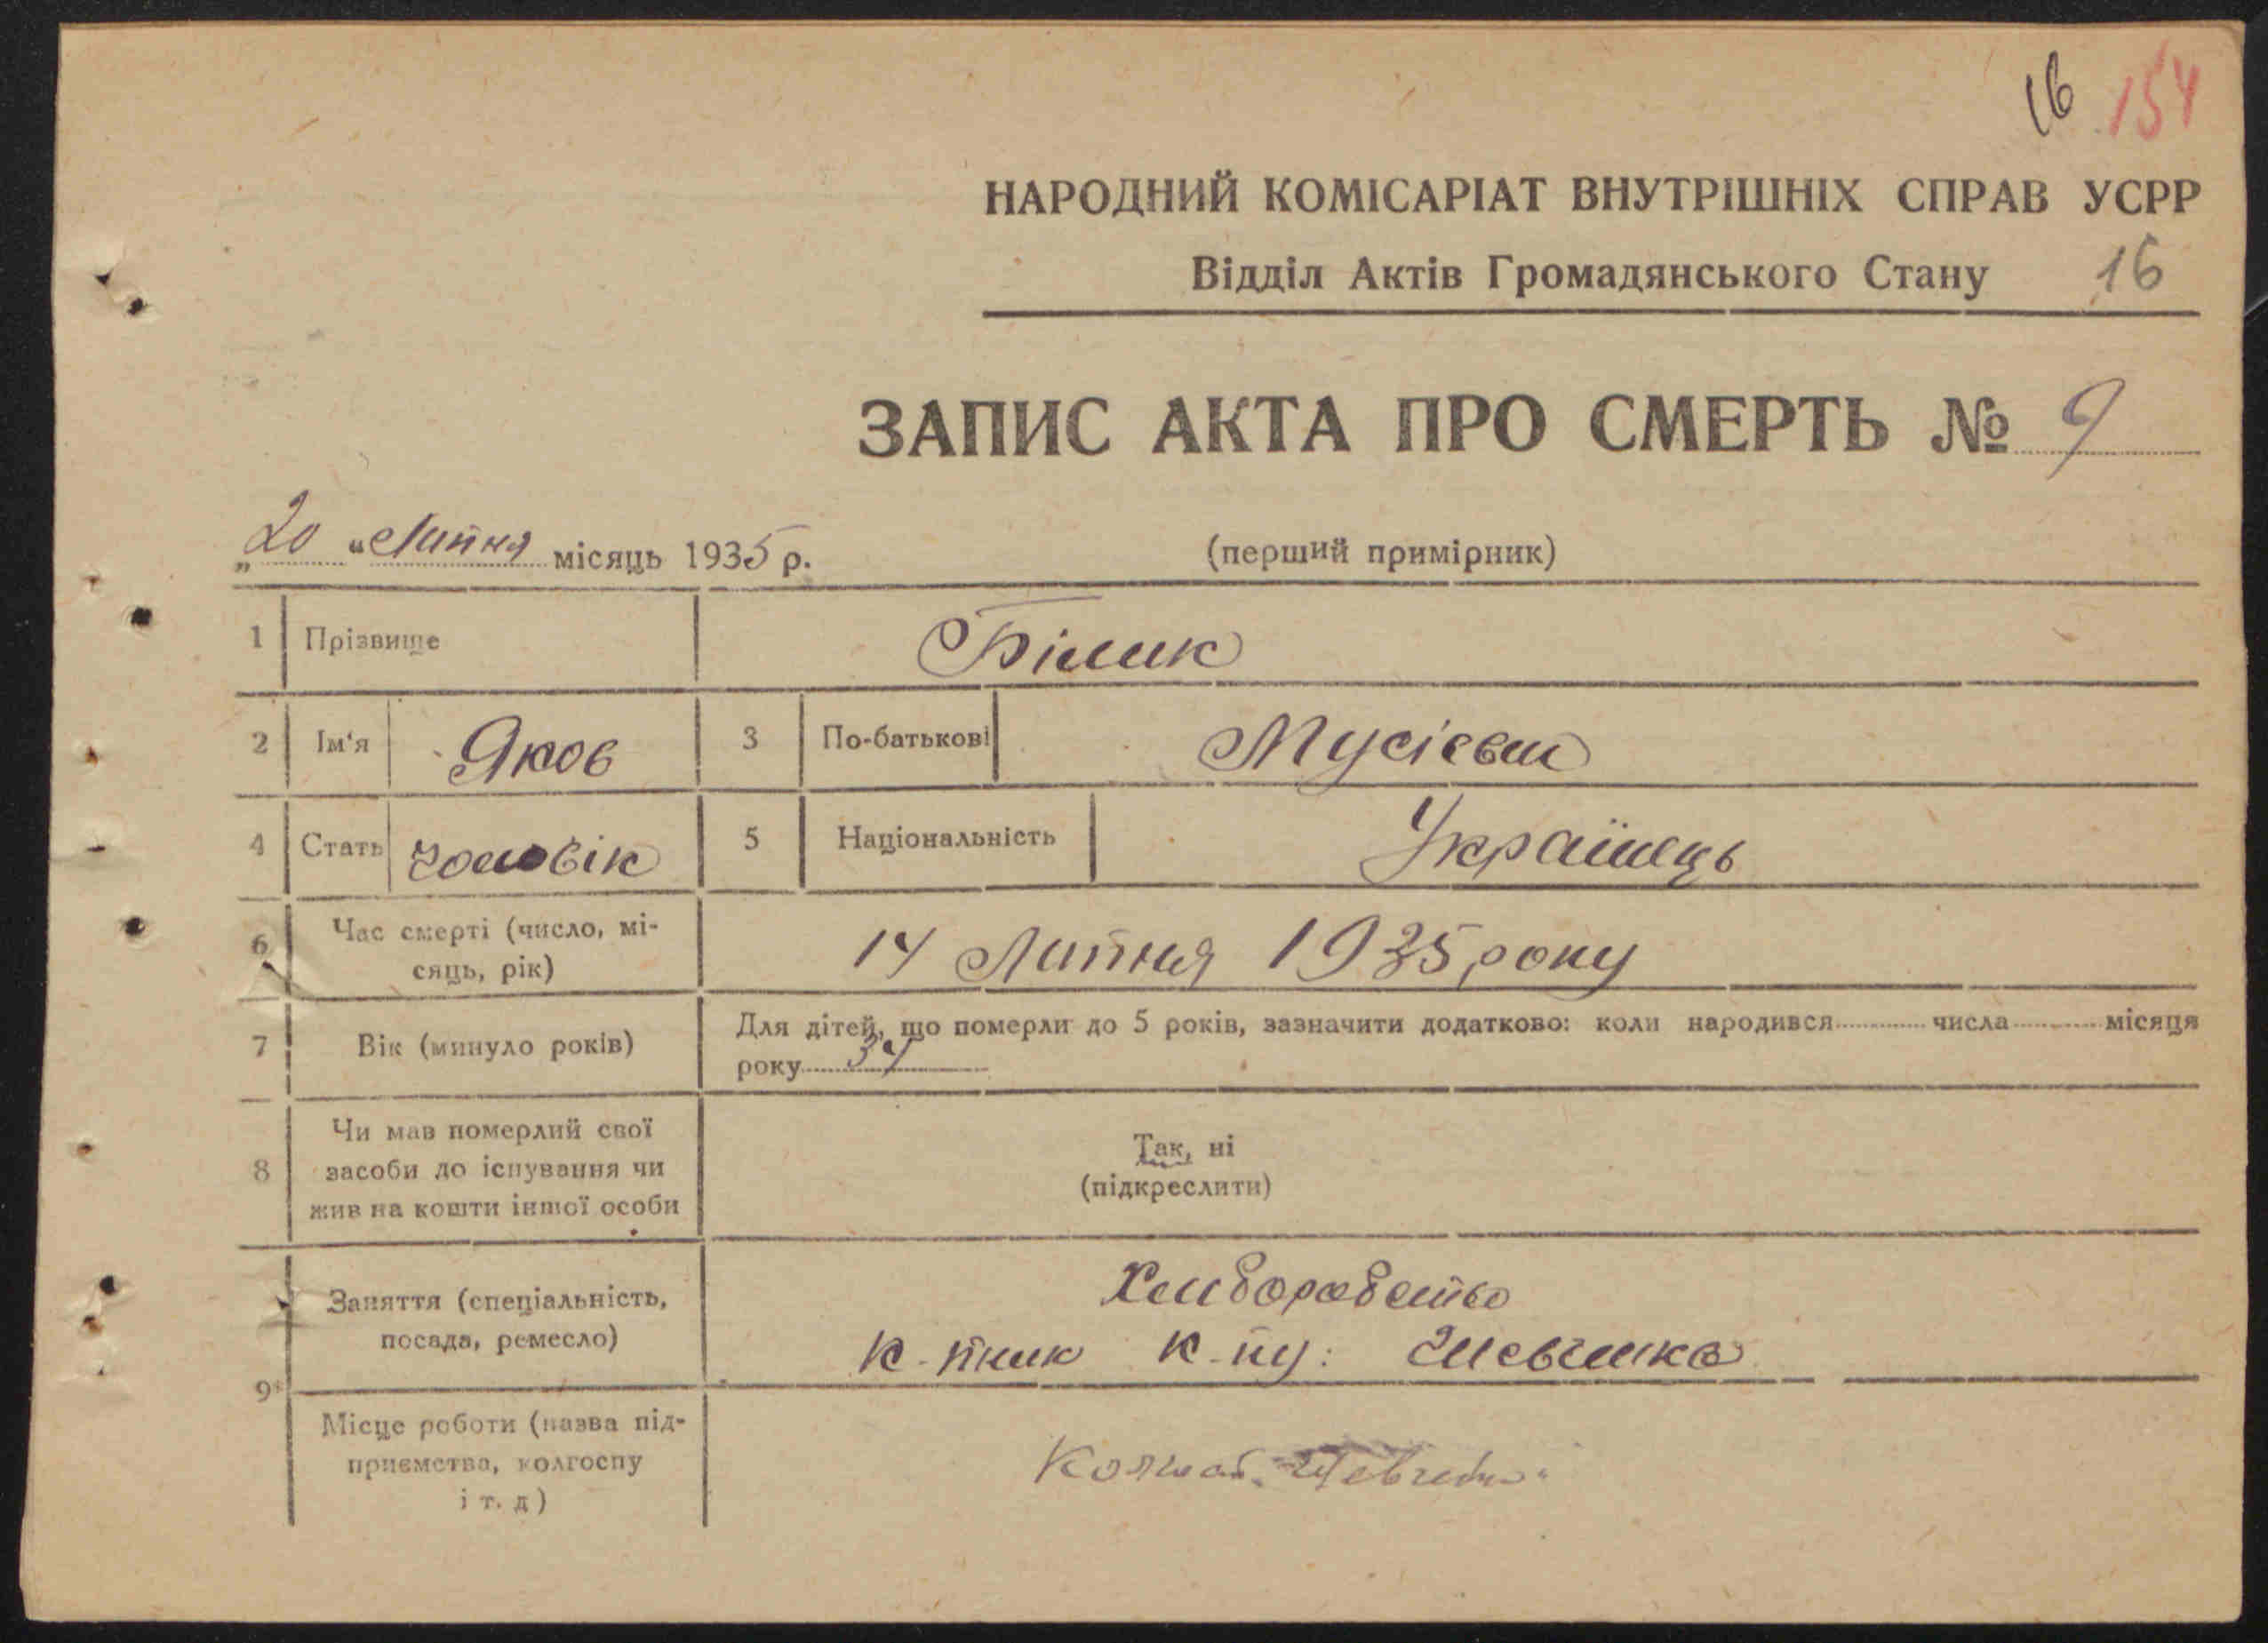 16 154
НАРОДНИЙ КОМІСАРІАТ ВНУТРІШНІХ СПРАВ УСРР
Відділ Актів Громадянського Стану 16
ЗАПИС АКТА ПРО СМЕРТЬ № 9
„20“ Липня місяць 1935 р. (перший примірник)
1 Прізвище Білик
2 Ім'я Яков 3 По-батькові Мусієвич
4 Стать чоловік 5 Національність Українець
6 Час смерті (число, мі-
сяць, рік) 14 Липня 1935 року
7 Вік (минуло років) Для дітей, що померли до 5 років, зазначити додатково: коли народився числа місяця
року 34
8 Чи мав померлий свої
засоби до існування чи
жив на кошти іншої особи
Так, ні
(підкреслити)
9 Заняття (спеціальність,
посада, ремесло)
Хлиборобство
к-пник к-пу: Шевченка
Місце роботи (назва під-
приємства, колгоспу
і т. д)
Шевченка